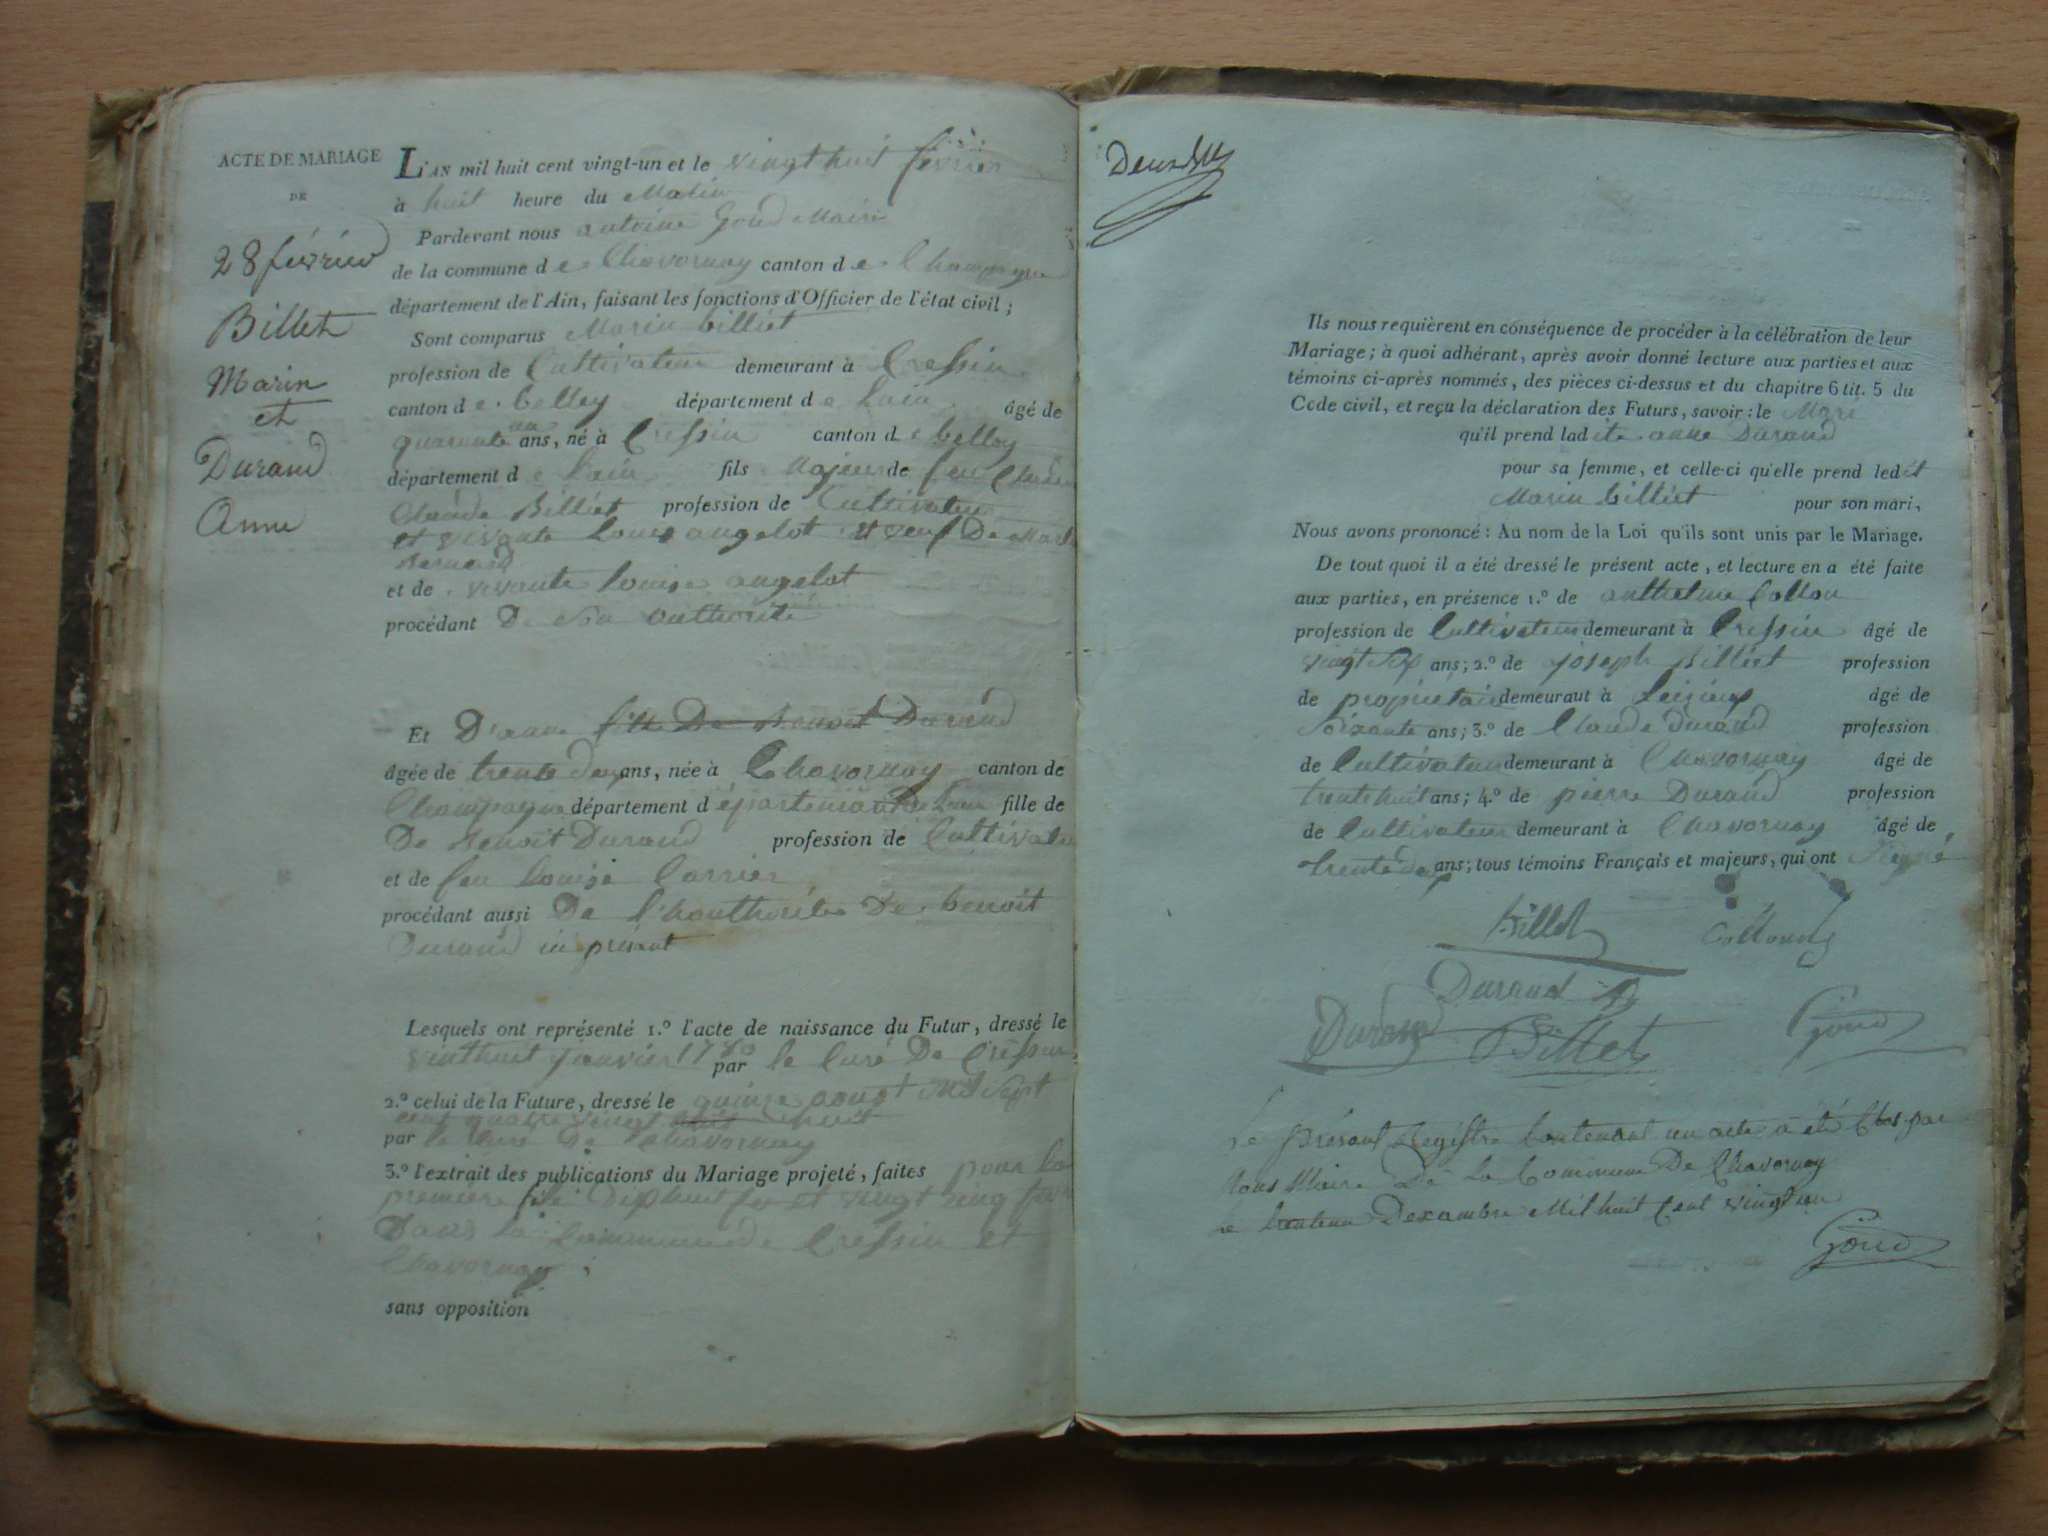 ACTE DE MARIAGE
DE
28 février
Billet
Marin
et
Durand
Anne
L'AN mil huit cent vingt-un et le vingt huit février
à huit heure du Matin
Pardevant nous antoine Goud Maire
de la commune de Chavornay canton de Champagne
département de l'Ain, faisant les fonctions d'Officier de l'état civil;
Sont comparus Marin billiet
profession de Cultivateur demeurant à Cressin
canton de belley département de Lain âgé de
quarante un ans, né à Cressin canton de belley
département de Lain fils Majeur de feu Claude
Claude Billiet profession de Cultivateur
et vivante Louise angelot et veuf De
Bernard
et de vivante Louise angelot
procédant De son authorité
Et D'anne fille De Benoit Durand
âgée de trente deux ans, née à Chavornay canton de
Champagne département département de Lain fille de
De Benoit Durand profession de Cultivateur
et de feu Louise Carrier
procédant aussi De l'houthorité De benoit
Durand ici présent
Lesquels ont représenté 1.º l'acte de naissance du Futur, dressé le
vinthuit janvier 1780 par le Curé De Cressin
2.º celui de la Future, dressé le quinze aoust Mil Sept
cent quatre vingt huit
par le Curé De Chavornay
3.º l'extrait des publications du Mariage projeté, faites pour la
première fois Dixhuit et vingt cinq
Dans la Commune de Cressin et
Chavornay
sans opposition
Ils nous requièrent en conséquence de procéder à la célébration de leur
Mariage; à quoi adhérant, après avoir donné lecture aux parties et aux
témoins ci-après nommés, des pièces ci-dessus et du chapitre 6 tit. 5 du
Code civil, et reçu la déclaration des Futurs, savoir: le Mari
qu'il prend ladite anne Durand
pour sa femme, et celle-ci qu'elle prend ledit
Marin billiet pour son mari,
Nous avons prononcé: Au nom de la Loi qu'ils sont unis par le Mariage.
De tout quoi il a été dressé le présent acte, et lecture en a été faite
aux parties, en présence 1.º de anthelme Collon
profession de Cultivateur demeurant à Cressin âgé de
vingt six ans; 2.º de joseph Billiet profession
de propriétair demeurant à Leizieux âgé de
Soixante ans; 3.º de Claude Durand profession
de Cultivateur demeurant à Chavornay âgé de
trente huit ans; 4.º de pierre Durand profession
de Cultivateur demeurant à Chavornay âgé de
trente deux ans; tous témoins Français et majeurs, qui ont Signé
Billet
Durand
Durand Billet Goud
Le présent Registre Contenant un acte a été Clos par
Nous Maire De La Commune De Chavornay
Le trenteun Dexambre Mil huit Cent vingt un
Goud